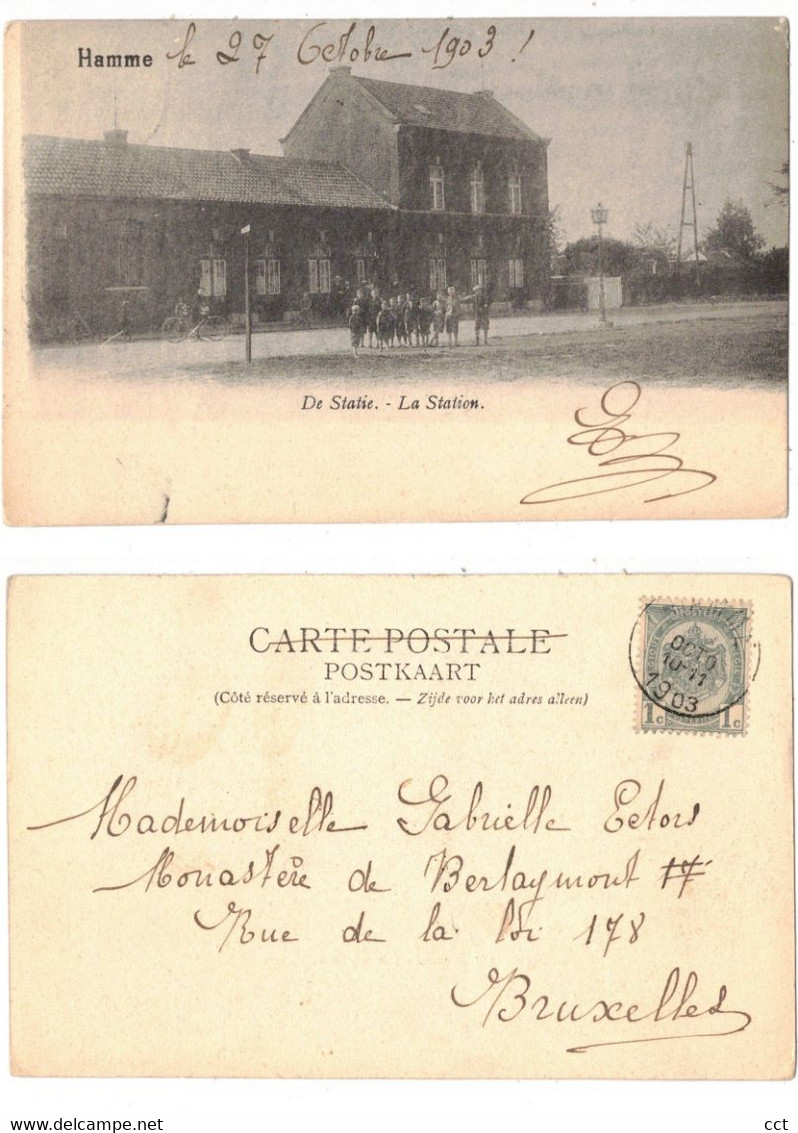 Hamme le 27 Octobre 1903 !
De Statie. - La Station.
CARTE POSTALE
POSTKAART
(Côté réservé à l'adresse. — Zijde voor het adres alleen)
OCTO
10-11
1903
1c 1c
Mademoiselle Gabrielle Ectors
Monastère de Berlaymont 17
Rue de la loi 178
Bruxelles
www.delcampe.net
cct